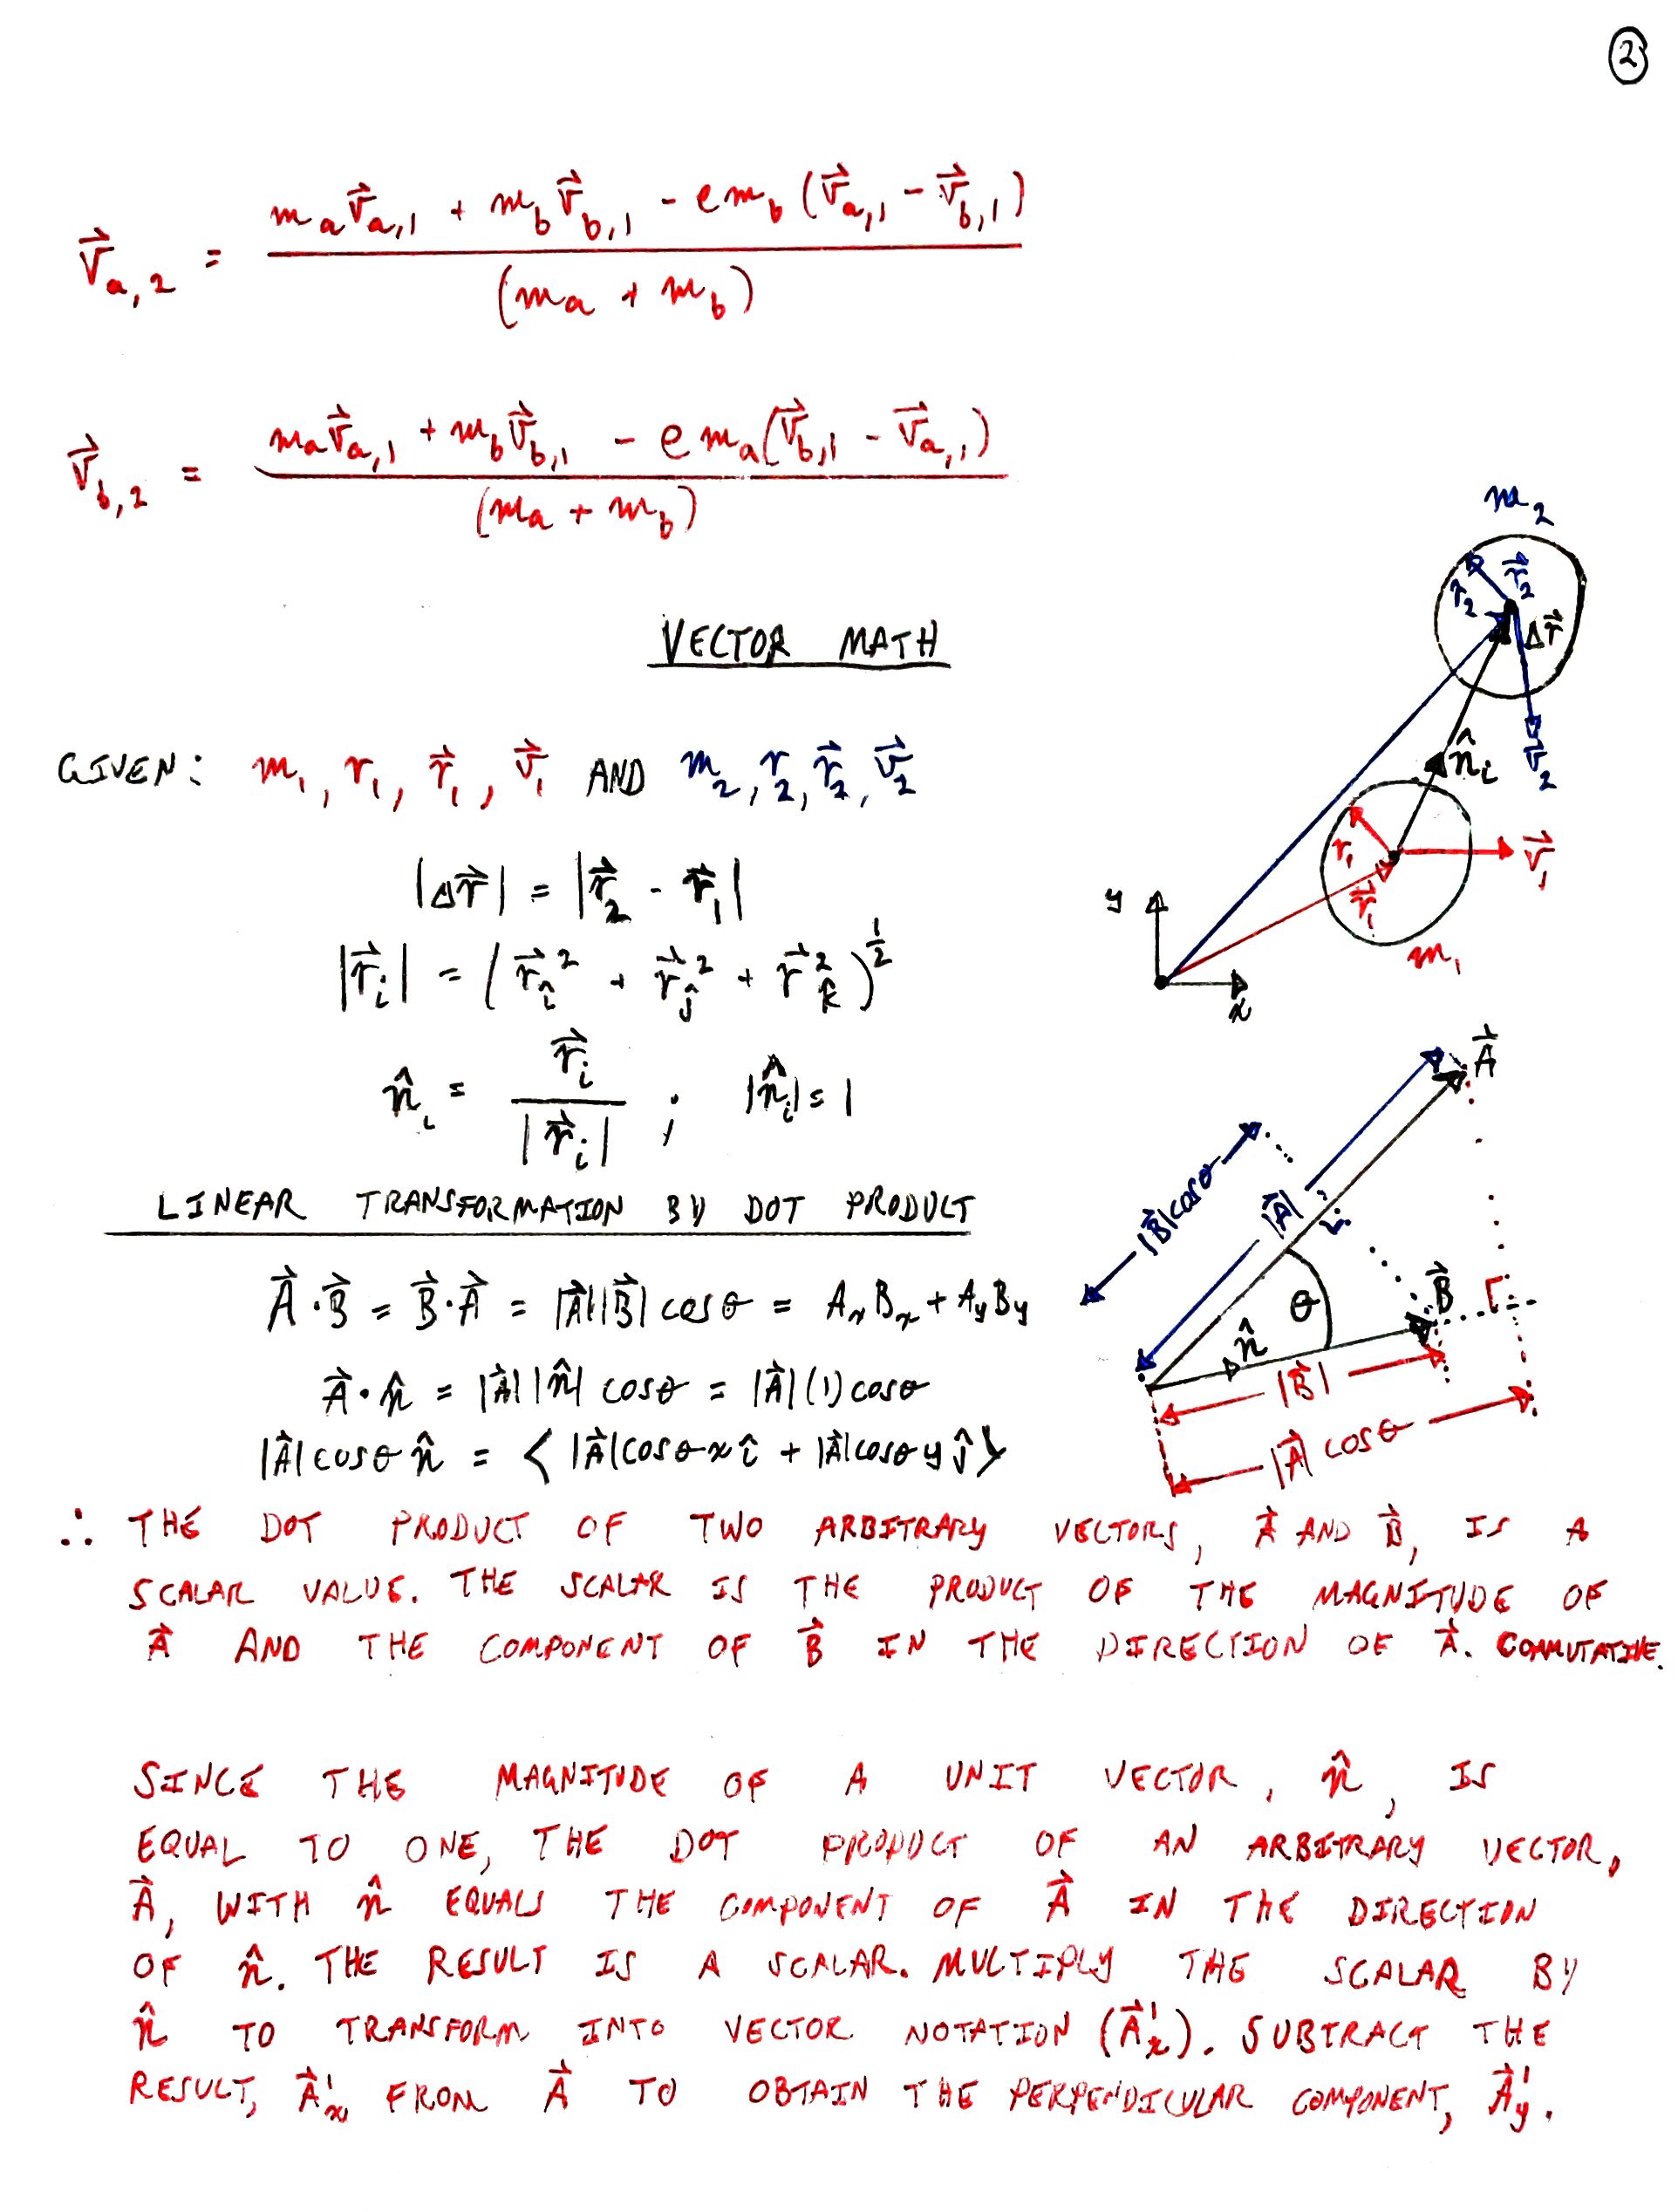 2
v⃗a,2 = (ma v⃗a,1 + mb v⃗b,1 - e mb (v⃗a,1 - v⃗b,1)) / (ma + mb)
v⃗b,2 = (ma v⃗a,1 + mb v⃗b,1 - e ma (v⃗b,1 - v⃗a,1)) / (ma + mb)
VECTOR MATH
GIVEN: m₁, r₁, r⃗₁, v⃗₁ AND m₂, r₂, r⃗₂, v⃗₂
|Δr⃗| = |r⃗₂ - r⃗₁|
|r⃗i| = (r⃗î² + r⃗ĵ² + r⃗k̂²)^½
n̂i = r⃗i / |r⃗i| ; |n̂i| = 1
m₂
r₂
r⃗₂
Δr⃗
n̂i
v⃗₂
r₁
r⃗₁
v⃗₁
m₁
y
x
LINEAR TRANSFORMATION BY DOT PRODUCT
A⃗ · B⃗ = B⃗ · A⃗ = |A⃗||B⃗| cosθ = AxBx + AyBy
A⃗ · n̂ = |A⃗||n̂| cosθ = |A⃗|(1)cosθ
|A⃗|cosθ n̂ = < |A⃗|cosθ x î + |A⃗|cosθ y ĵ >
A⃗
|B⃗|cosθ
|A⃗|
θ
B⃗
n̂
|B⃗|
|A⃗| cosθ
∴ THE DOT PRODUCT OF TWO ARBITRARY VECTORS, A⃗ AND B⃗, IS A
SCALAR VALUE. THE SCALAR IS THE PRODUCT OF THE MAGNITUDE OF
A⃗ AND THE COMPONENT OF B⃗ IN THE DIRECTION OF A⃗. COMMUTATIVE.
SINCE THE MAGNITUDE OF A UNIT VECTOR, n̂, IS
EQUAL TO ONE, THE DOT PRODUCT OF AN ARBITRARY VECTOR,
A⃗, WITH n̂ EQUALS THE COMPONENT OF A⃗ IN THE DIRECTION
OF n̂. THE RESULT IS A SCALAR. MULTIPLY THE SCALAR BY
n̂ TO TRANSFORM INTO VECTOR NOTATION (A⃗'x). SUBTRACT THE
RESULT, A⃗'x, FROM A⃗ TO OBTAIN THE PERPENDICULAR COMPONENT, A⃗'y.